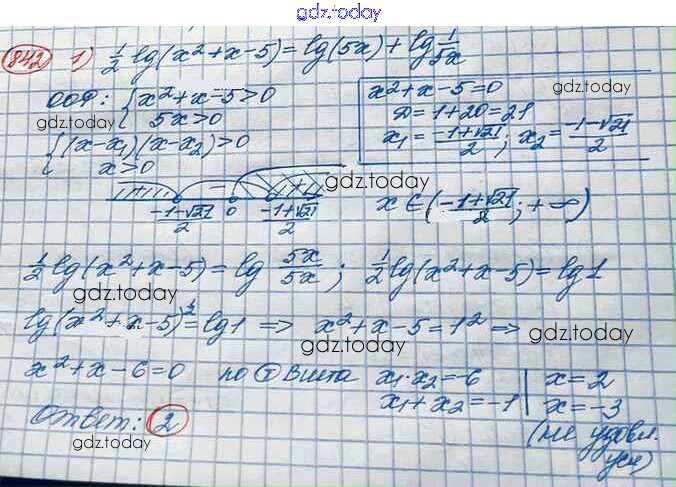 gdz.today
gdz.today
842 1) 1/2 lg(x²+x-5)=lg(5x)+lg 1/5x
ООФ: { x²+x-5>0
5x>0
gdz.today
{ (x-x₁)(x-x₂)>0
x>0
x²+x-5=0
gdz.today
D=1+20=21
x₁=(-1+√21)/2; x₂=(-1-√21)/2
- + gdz.today
(-1-√21)/2 0 (-1+√21)/2
x∈((-1+√21)/2; +∞)
1/2 lg(x²+x-5)=lg 5x/5x; 1/2 lg(x²+x-5)=lg1
gdz.today
gdz.today
lg(x²+x-5)^1/2=lg1 => x²+x-5=1² =>
gdz.today
gdz.today
x²+x-6=0 по Т Виета x₁·x₂=-6 | x=2
x₁+x₂=-1 | x=-3
Ответ: 2
(не удовл.
усл)
gdz.today
gdz.today